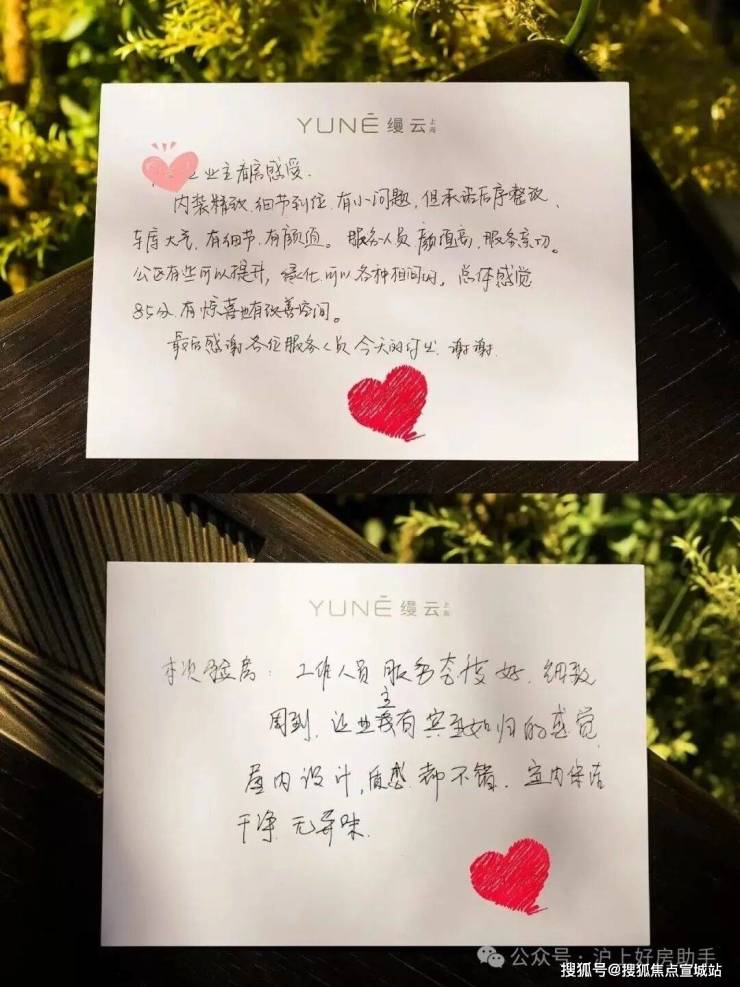 YUNĒ 缦云上海
业主看房感受.
内装精致.细节到位.有小问题,但承诺后序整改、
车库大气,有细节.有颜值。服务人员颜值高,服务亲切。
公区有些可以提升,绿化可以各种相间的,总体感觉
85分.有惊喜也有改善空间。
最后感谢各位服务人员今天的付出.谢谢.
YUNĒ 缦云上海
本次验房:工作人员服务态度好.细致
周到,让业主有宾至如归的感觉
屋内设计,质感都不错.室内保洁
干净 无异味.
公众号·沪上好房助手
搜狐号@搜狐焦点宣城站